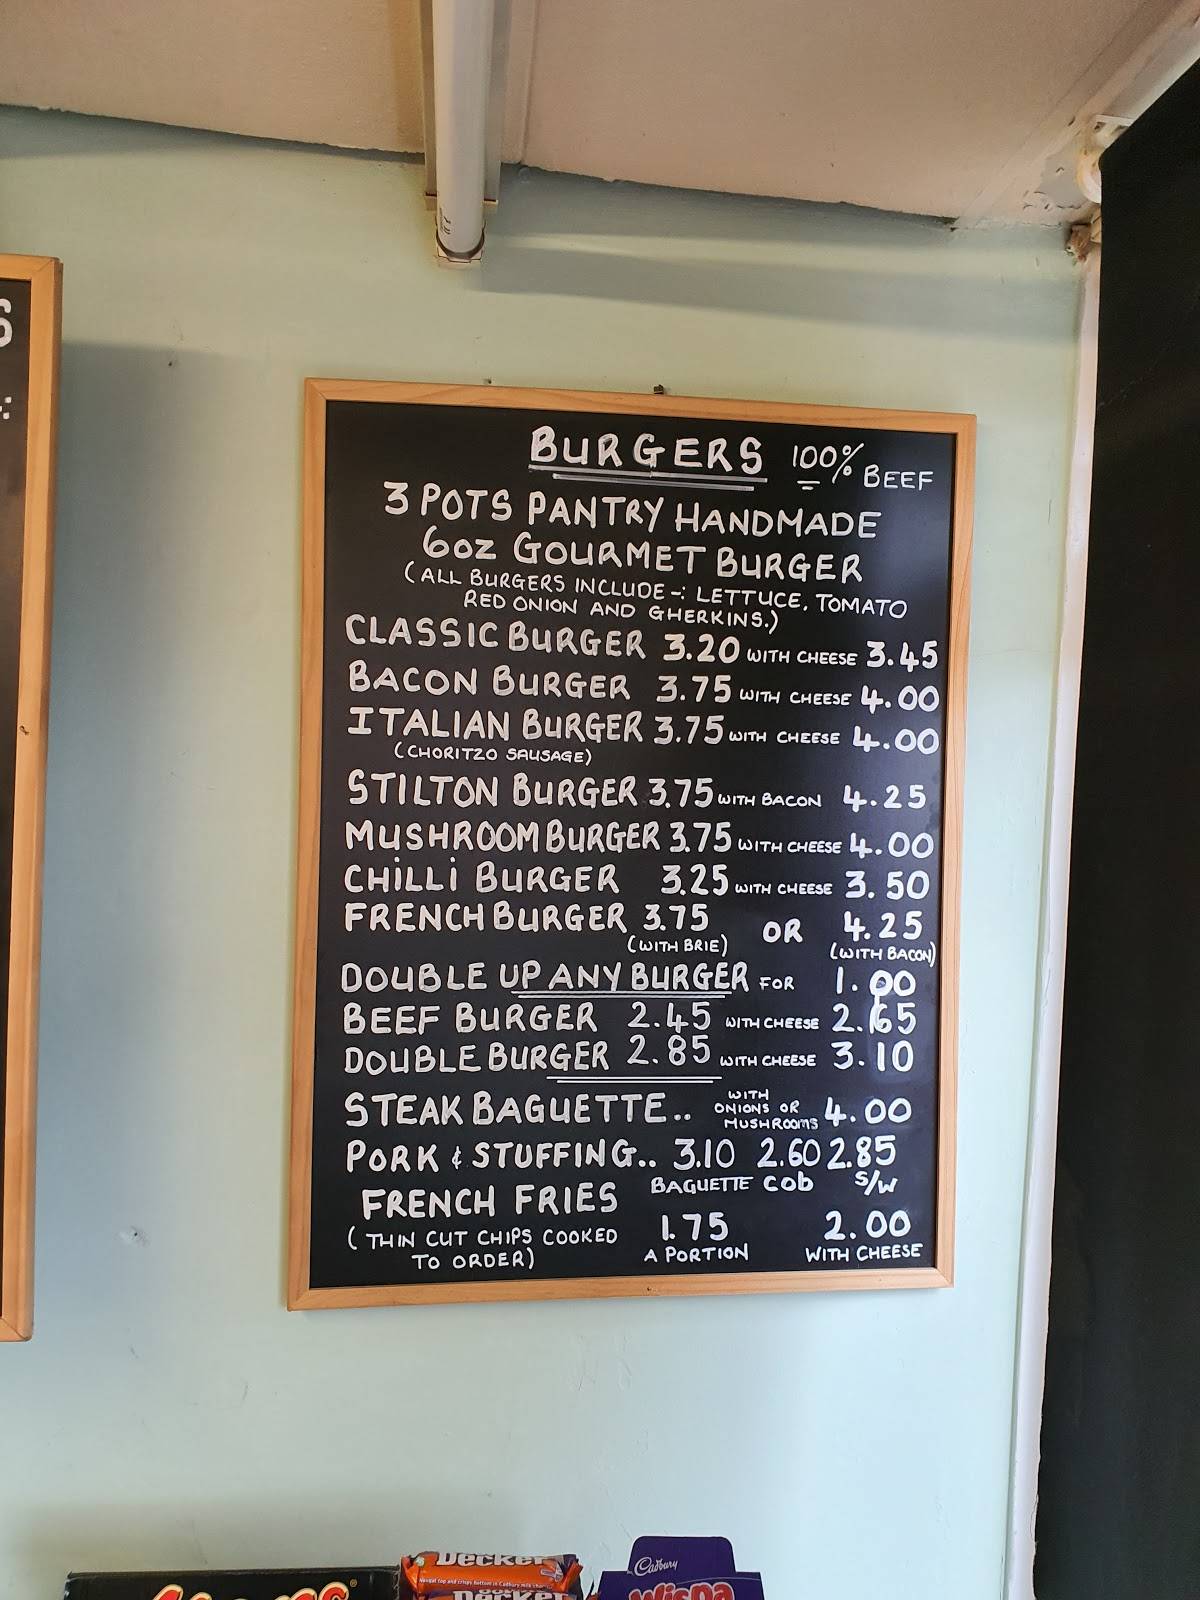 BURGERS 100% BEEF
3 POTS PANTRY HANDMADE
6oz GOURMET BURGER
(ALL BURGERS INCLUDE -: LETTUCE, TOMATO
RED ONION AND GHERKINS.)
CLASSIC BURGER 3.20 WITH CHEESE 3.45
BACON BURGER 3.75 WITH CHEESE 4.00
ITALIAN BURGER 3.75 WITH CHEESE 4.00
(CHORITZO SAUSAGE)
STILTON BURGER 3.75 WITH BACON 4.25
MUSHROOM BURGER 3.75 WITH CHEESE 4.00
CHILLI BURGER 3.25 WITH CHEESE 3.50
FRENCH BURGER 3.75 OR 4.25
(WITH BRIE) (WITH BACON)
DOUBLE UP ANY BURGER FOR 1.00
BEEF BURGER 2.45 WITH CHEESE 2.65
DOUBLE BURGER 2.85 WITH CHEESE 3.10
STEAK BAGUETTE.. WITH ONIONS OR MUSHROOMS 4.00
PORK & STUFFING.. 3.10 2.60 2.85
BAGUETTE COB S/W
FRENCH FRIES 1.75 2.00
(THIN CUT CHIPS COOKED TO ORDER) A PORTION WITH CHEESE
Decker
Nougat top and crispy bottom in Cadbury milk
Decker
Cadbury
Wispa